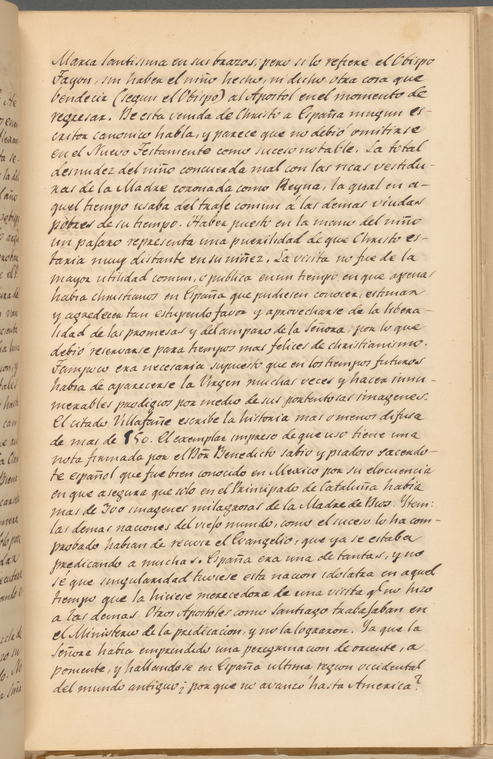 Maria Santisima en sus brazos, pero si lo refiere el Obispo
Tayon, sin haber el niño hecho, ni dicho otra cosa que
bendecir (segun el Obispo) al Apostol en el momento de
regresar. De esta venida de Christo a España ningun es-
critor canonico habla, y parece que no debió omitirse
en el Nuevo Testamento como suceso notable. La total
desnudez del niño concuerda mal con las ricas vestidu-
ras de la Madre coronada como Reyna, la qual en a-
quel tiempo usaba del traje comun á las demas viudas
pobres de su tiempo. Haber puesto en la mano del niño
un pajaro representa una puerilidad de que Christo es-
taria muy distante en su niñez. La visita no fue de la
mayor utilidad comun, o publica en un tiempo en que apenas
habia christianos en España que pudiesen conocer, estimar
y agradecer tan estupendo favor y aprovecharse de la libera-
lidad de las promesas y del amparo de la Señora, por lo que
debió reservarse para tiempos mas felices de christianismo.
Tampoco era necesaria supuesto que en los tiempos futuros
habia de aparecerse la Virgen muchas veces y hacer innu-
merables prodigios por medio de sus portentosas imagenes.
El citado Villafañe escribe la historia mas o menos difusa
de mas de 150. El exemplar impreso de que uso tiene una
nota firmada por el Dor Benedicto sabio y piadoso sacerdo-
te español que fue bien conocido en Mexico por su elocuencia
en que asegura que solo en el Principado de Cataluña habia
mas de 300 imagenes milagrosas de la Madre de Dios. Item:
las demas naciones del viejo mundo, como el suceso lo ha com-
probado habian de recivir el Evangelio, que ya se estaba
predicando a muchas. España era una de tantas, y no
sé que singularidad tuviese esta nacion idolatra en aquel
tiempo que la hiciese merecedora de una visita q.e no hizo
a las demas. Otros Apostoles como Santiago trabajaban en
el Ministerio de la predicacion, y no la lograron. Ya que la
Señora habia emprendido una peregrinacion de oriente, a
poniente, y hallandose en España ultima region occidental
del mundo antiguo; por que no avanzó hasta America?